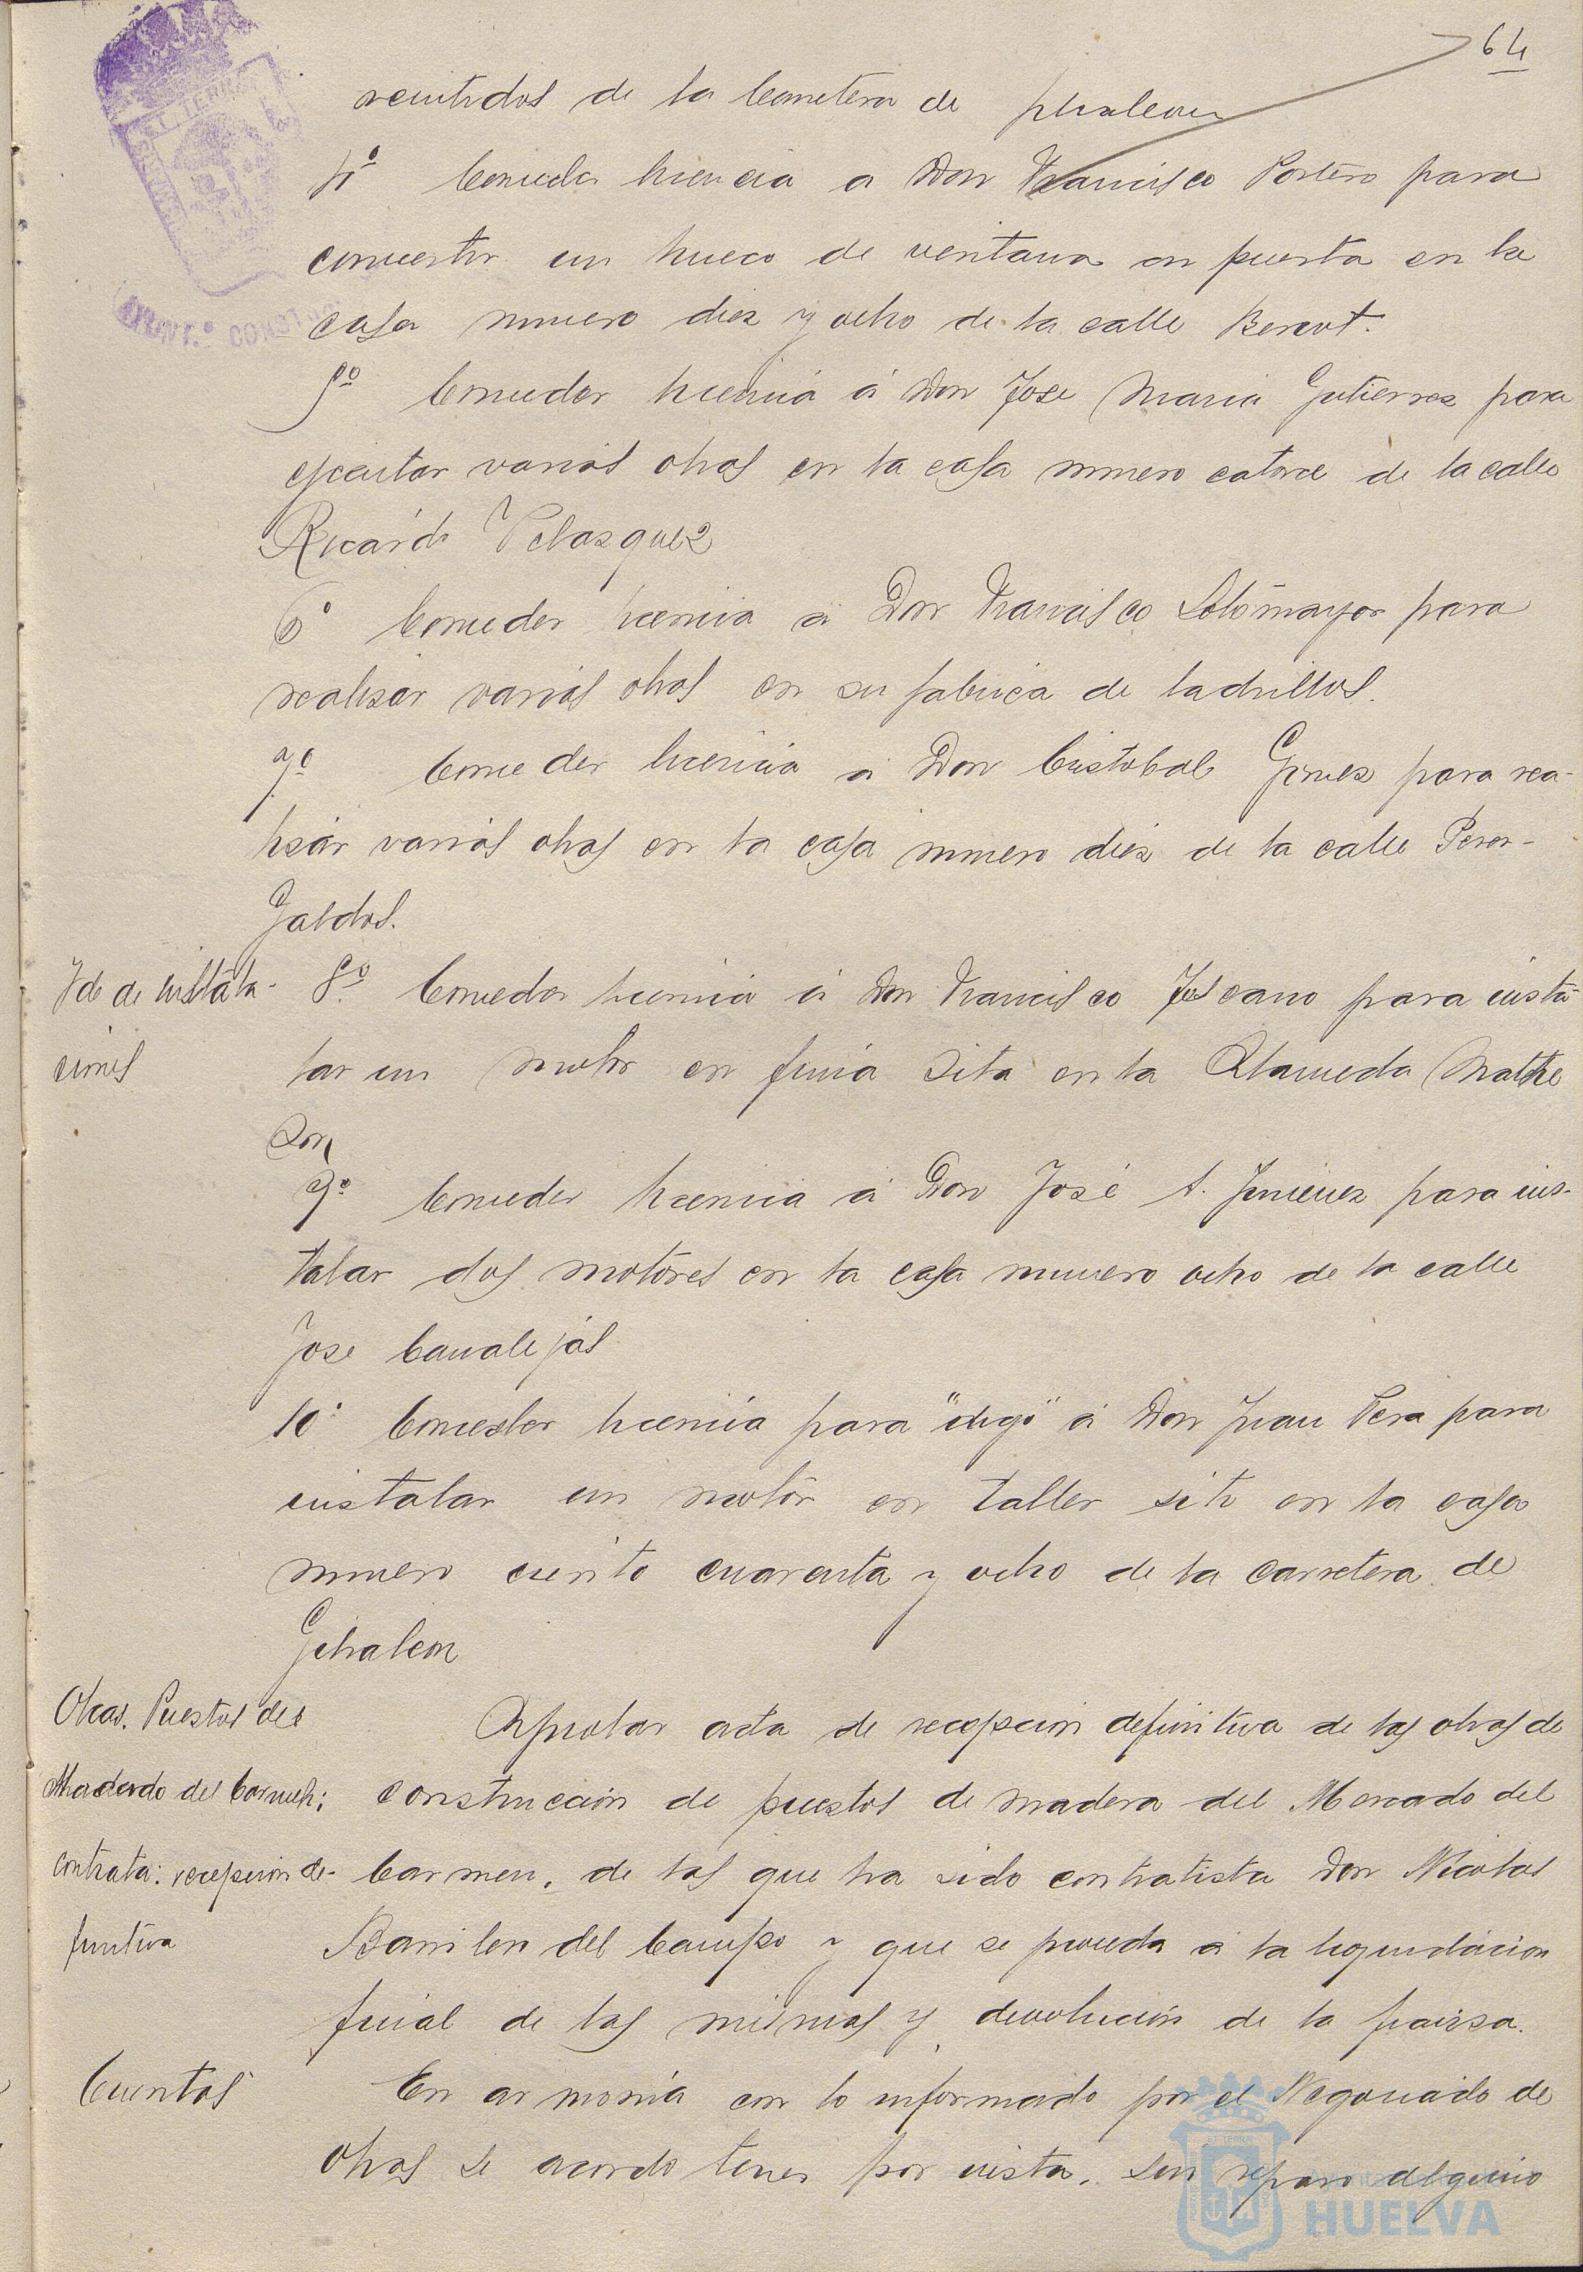 64
de la Carretera de Gibraleon
4º Conceder licencia a Don Francisco Portero para
convertir un hueco de ventana en puerta en la
casa numero diez y ocho de la calle Berrot.
5º Conceder licencia á Don Jose Maria Gutierrez para
ejecutar varias obras en la casa numero catorce de la calle
Ricardo Velazquez
6º Conceder licencia á Don Francisco Sotomayor para
realizar varias obras en su fabrica de ladrillos.
7º Conceder licencia á Don Cristobal Ginez para rea-
lizar varias obras en la casa numero diez de la calle Perez-
Galdos.
Id de instala-
ciones
8º Conceder licencia á Don Francisco Toscano para insta-
lar un motor en finca sita en la Alameda Mathe
son
9º Conceder licencia á Don José A. Jimenez para ins-
talar dos motores en la casa numero ocho de la calle
Jose Canalejas
10º Conceder licencia para "digo" á Don Juan Vera para
instalar un motor en taller sito en la casa
numero ciento cuarenta y ocho de la carretera de
Gibraleon
Obras. Puestos del
Mercado del Carmen;
contrata: recepcion de-
finitiva
Aprobar acta de recepcion definitiva de las obras de
construccion de puestos de madera del Mercado del
Carmen, de las que ha sido contratista Don Nicolas
Barrilero del Campo y que se proceda á la liquidacion
final de las mismas y devolucion de la fianza.
Cuentas
En armonia con lo informado por el Negociado de
Obras se acordo tener por vista, sin reparo alguno
AYUNT.º CONST
HUELVA